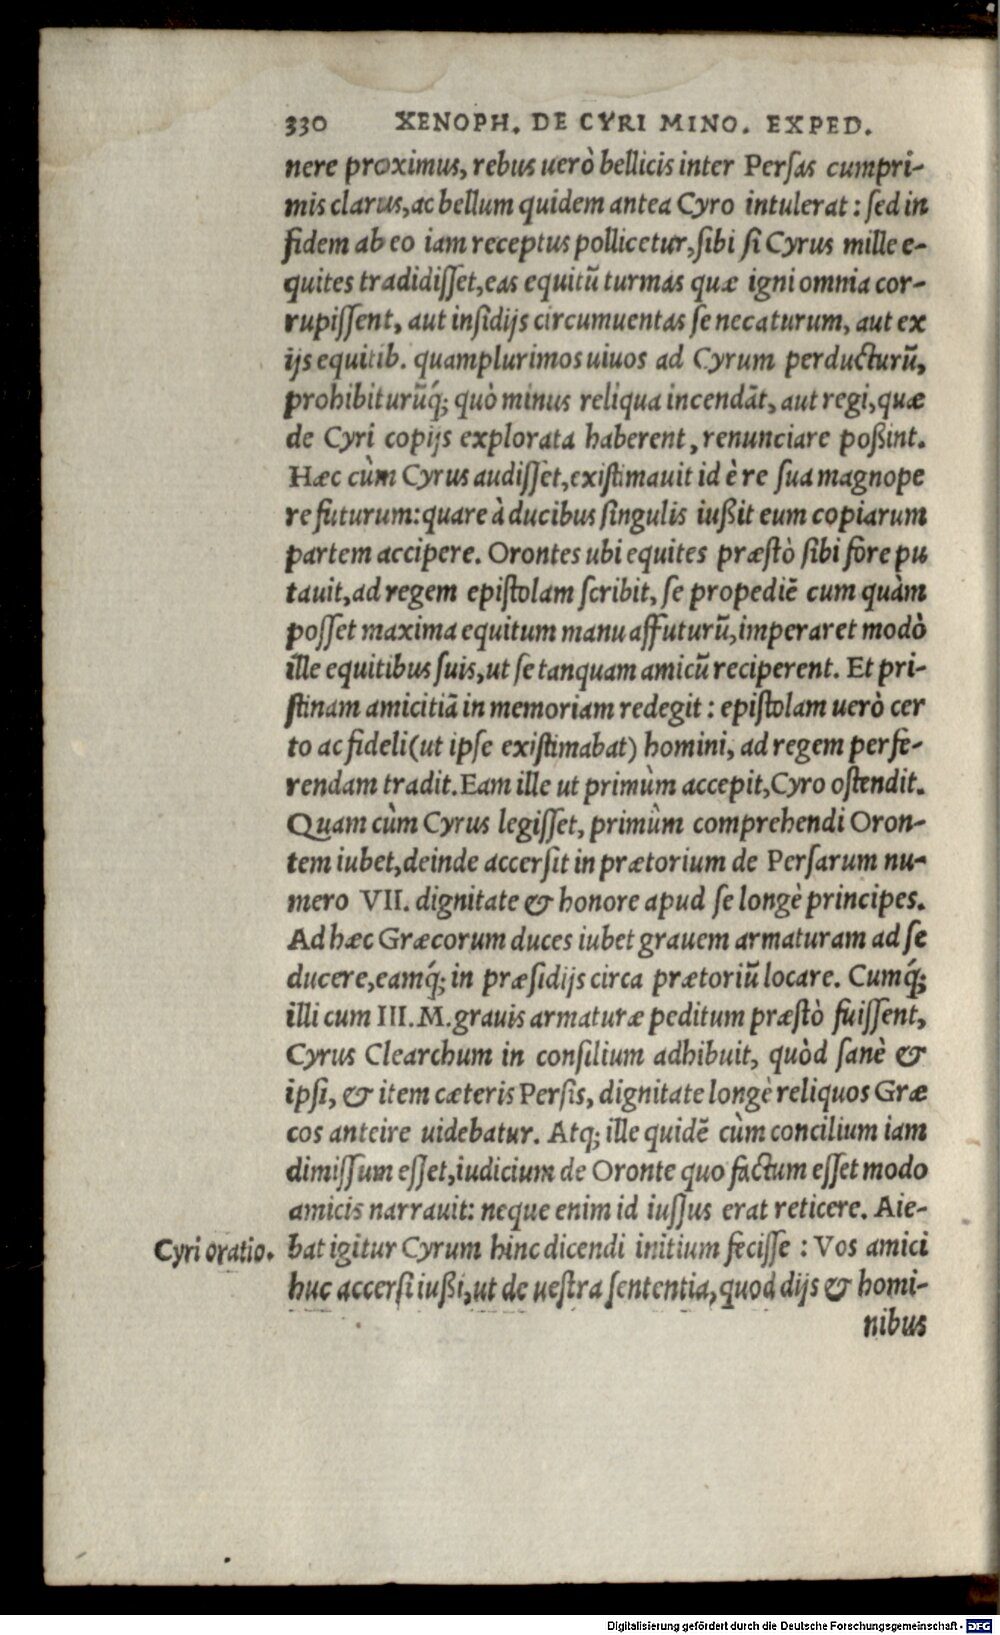 330 XENOPH. DE CYRI MINO. EXPED.
nere proximus, rebus uerò bellicis inter Persas cumpri-
mis clarus, ac bellum quidem antea Cyro intulerat: sed in
fidem ab eo iam receptus pollicetur, sibi si Cyrus mille e-
quites tradidisset, eas equitũ turmas quæ igni omnia cor-
rupissent, aut insidijs circumuentas se necaturum, aut ex
ijs equitib. quamplurimos uiuos ad Cyrum perducturũ,
prohibiturũq́; quò minus reliqua incendãt, aut regi, quæ
de Cyri copijs explorata haberent, renunciare poßint.
Hæc cùm Cyrus audisset, existimauit id è re sua magnope
re futurum: quare à ducibus singulis iußit eum copiarum
partem accipere. Orontes ubi equites præstò sibi fore pu
tauit, ad regem epistolam scribit, se propediẽ cum quàm
posset maxima equitum manu affuturũ, imperaret modò
ille equitibus suis, ut se tanquam amicũ reciperent. Et pri-
stinam amicitiã in memoriam redegit: epistolam uerò cer
to ac fideli (ut ipse existimabat) homini, ad regem perfe-
rendam tradit. Eam ille ut primùm accepit, Cyro ostendit.
Quam cùm Cyrus legisset, primùm comprehendi Oron-
tem iubet, deinde accersit in prætorium de Persarum nu-
mero VII. dignitate & honore apud se longè principes.
Ad hæc Græcorum duces iubet grauem armaturam ad se
ducere, eamq́; in præsidijs circa prætoriũ locare. Cumq́;
illi cum III. M. grauis armaturæ peditum præstò fuissent,
Cyrus Clearchum in consilium adhibuit, quòd sanè &
ipsi, & item cæteris Persis, dignitate longè reliquos Græ
cos anteire uidebatur. Atq; ille quidẽ cùm concilium iam
dimissum esset, iudicium de Oronte quo factum esset modo
amicis narrauit: neque enim id iussus erat reticere. Aie-
Cyri oratio. bat igitur Cyrum hinc dicendi initium fecisse: Vos amici
huc accersi iußi, ut de uestra sententia, quod dijs & homi-
nibus
Digitalisierung gefördert durch die Deutsche Forschungsgemeinschaft - DFG